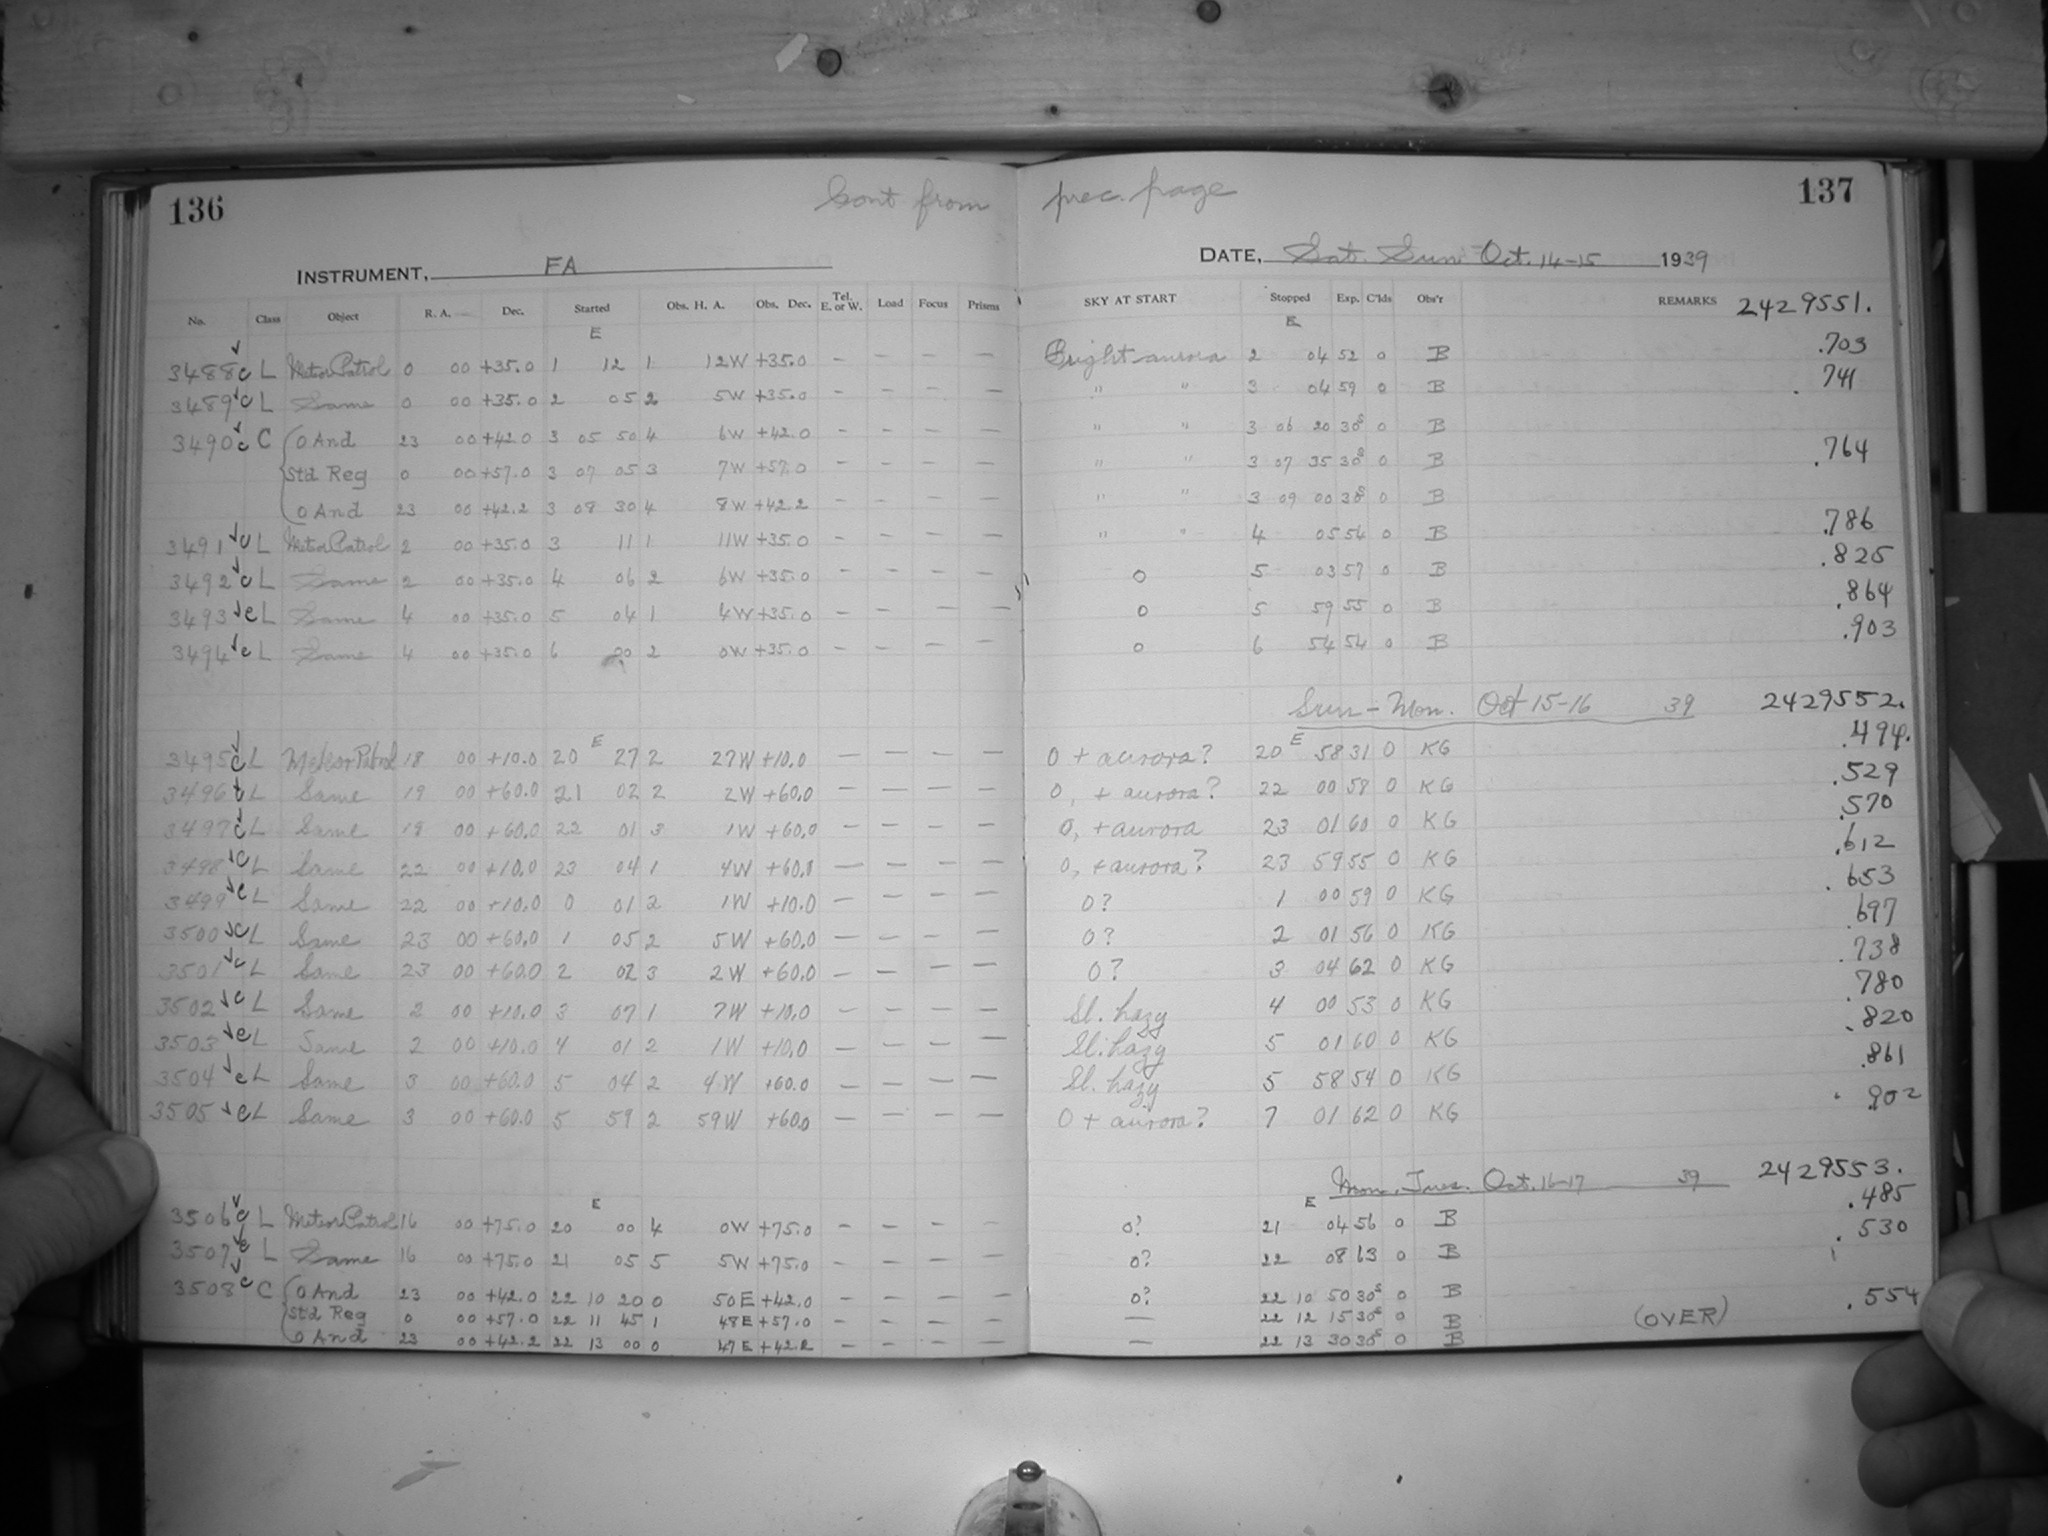 136 Cont from prec. page 137
INSTRUMENT, FA DATE, Sat. Sun Oct. 14-15 1939
No. Class Object R. A. Dec. Started Obs. H. A. Obs. Dec. Tel. E. or W. Load Focus Prisms SKY AT START Stopped Exp. C'lds Obs'r REMARKS 2429551.
E E
3488 c L Meteor Patrol 0 00 +35.0 1 12 1 12W +35.0 – – – – Bright aurora 2 04 52 0 B .703
3489 c L Same 0 00 +35.0 2 05 2 5W +35.0 – – – – " " 3 04 59 0 B .741
3490 c C O And 23 00 +42.0 3 05 50 4 6W +42.0 – – – – " " 3 06 20 30s 0 B
Std Reg 0 00 +57.0 3 07 05 3 7W +57.0 – – – – " " 3 07 35 30s 0 B .764
O And 23 00 +42.2 3 08 30 4 8W +42.2 – – – – " " 3 09 00 30s 0 B
3491 c L Meteor Patrol 2 00 +35.0 3 11 1 11W +35.0 – – – – " " 4 05 54 0 B .786
3492 c L Same 2 00 +35.0 4 06 2 6W +35.0 – – – – 0 5 03 57 0 B .825
3493 c L Same 4 00 +35.0 5 04 1 4W +35.0 – – – – 0 5 59 55 0 B .864
3494 c L Same 4 00 +35.0 6 00 2 0W +35.0 – – – – 0 6 54 54 0 B .903
Sun – Mon. Oct 15-16 39 2429552.
E E
3495 c L Meteor Patrol 18 00 +10.0 20 27 2 27W +10.0 – – – – 0 + aurora? 20 58 31 0 KG .494
3496 c L Same 19 00 +60.0 21 02 2 2W +60.0 – – – – 0, + aurora? 22 00 58 0 KG .529
3497 c L Same 19 00 +60.0 22 01 3 1W +60.0 – – – – 0, + aurora 23 01 60 0 KG .570
3498 c L Same 22 00 +10.0 23 04 1 4W +60.0 – – – – 0, + aurora? 23 59 55 0 KG .612
3499 c L Same 22 00 +10.0 0 01 2 1W +10.0 – – – – 0? 1 00 59 0 KG .653
3500 c L Same 23 00 +60.0 1 05 2 5W +60.0 – – – – 0? 2 01 56 0 KG .697
3501 c L Same 23 00 +60.0 2 02 3 2W +60.0 – – – – 0? 3 04 62 0 KG .738
3502 c L Same 2 00 +10.0 3 07 1 7W +10.0 – – – – Sl. hazy 4 00 53 0 KG .780
3503 c L Same 2 00 +10.0 4 01 2 1W +10.0 – – – – Sl. hazy 5 01 60 0 KG .820
3504 c L Same 3 00 +60.0 5 04 2 4W +60.0 – – – – Sl. hazy 5 58 54 0 KG .861
3505 c L Same 3 00 +60.0 5 59 2 59W +60.0 – – – – 0 + aurora? 7 01 62 0 KG .902
Mon. Tues. Oct. 16-17 39 2429553.
E E
3506 c L Meteor Patrol 16 00 +75.0 20 00 4 0W +75.0 – – – – 0? 21 04 56 0 B .485
3507 c L Same 16 00 +75.0 21 05 5 5W +75.0 – – – – 0? 22 08 63 0 B .530
3508 c C O And 23 00 +42.0 22 10 20 0 50E +42.0 – – – – 0? 22 10 50 30s 0 B .554
Std Reg 0 00 +57.0 22 11 45 1 48E +57.0 – – – – — 22 12 15 30s 0 B (OVER)
O And 23 00 +42.2 22 13 00 0 47E +42.2 – – – – — 22 13 30 30s 0 B